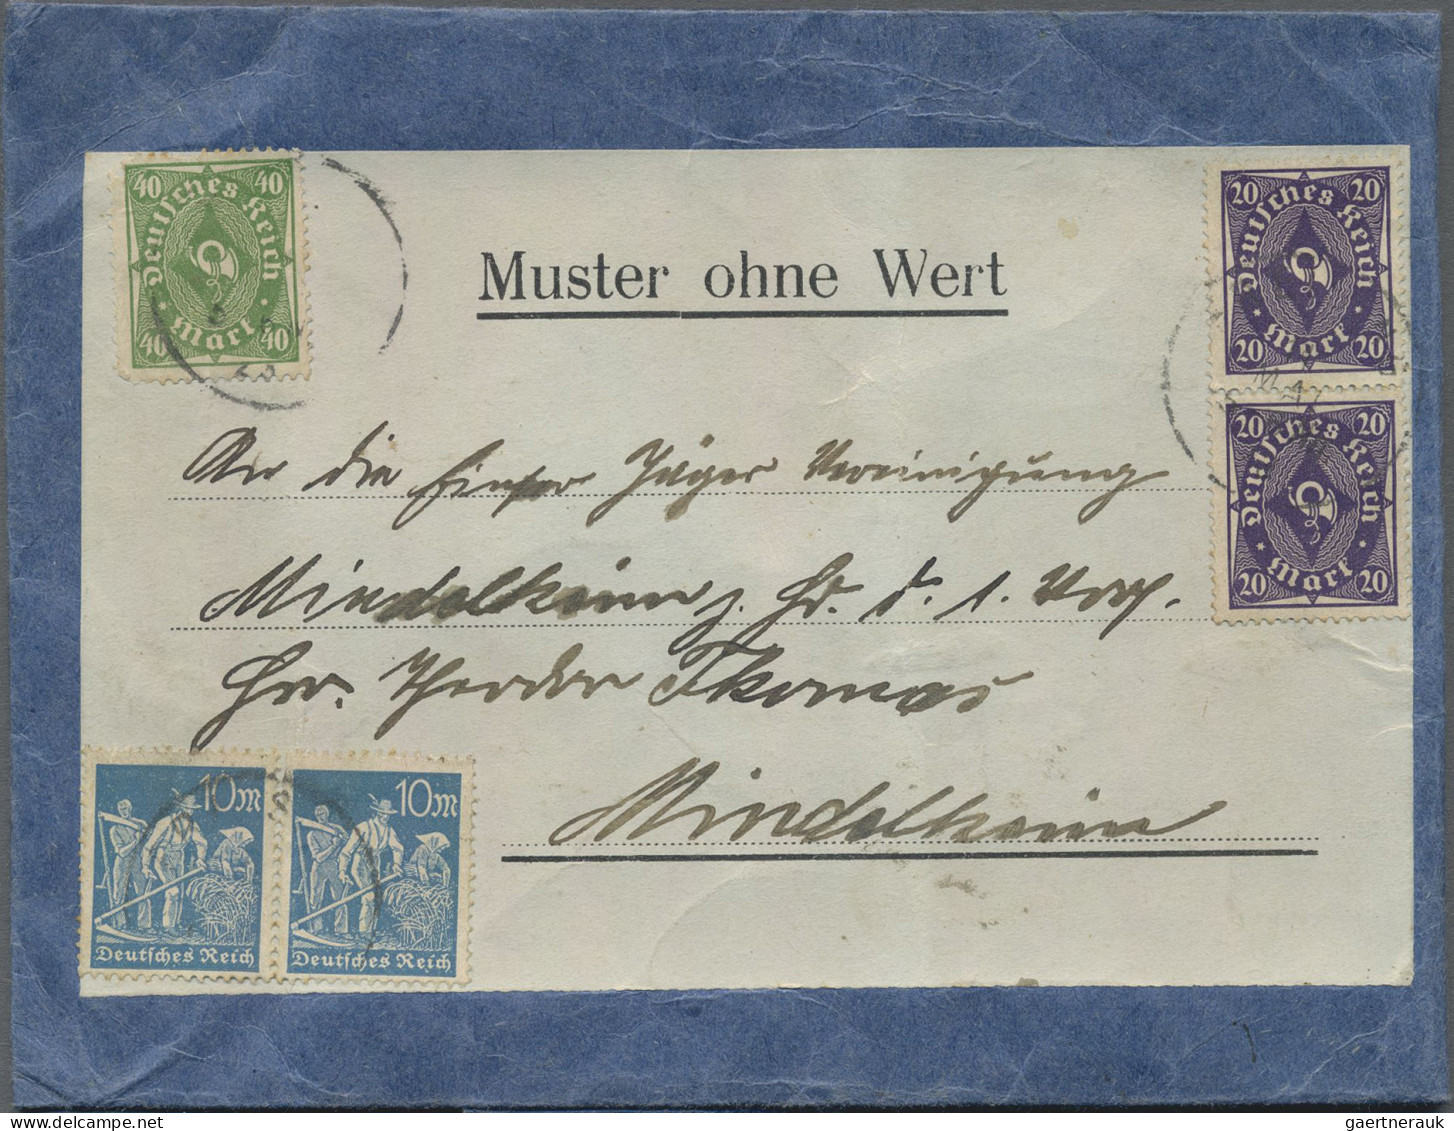 40 40
Deutsches Reich
Mark
40 40
20 20
Deutsches Reich
Mark
20 20
Muster ohne Wert
An die Jäger Vereinigung
20 20
Deutsches Reich
Mark
20 20
Mindelheim z. Hd. d. 1. Vors.
Hrn. Theodor Thomas
Mindelheim
10M
Deutsches Reich
10M
Deutsches Reich
gaertnerauk